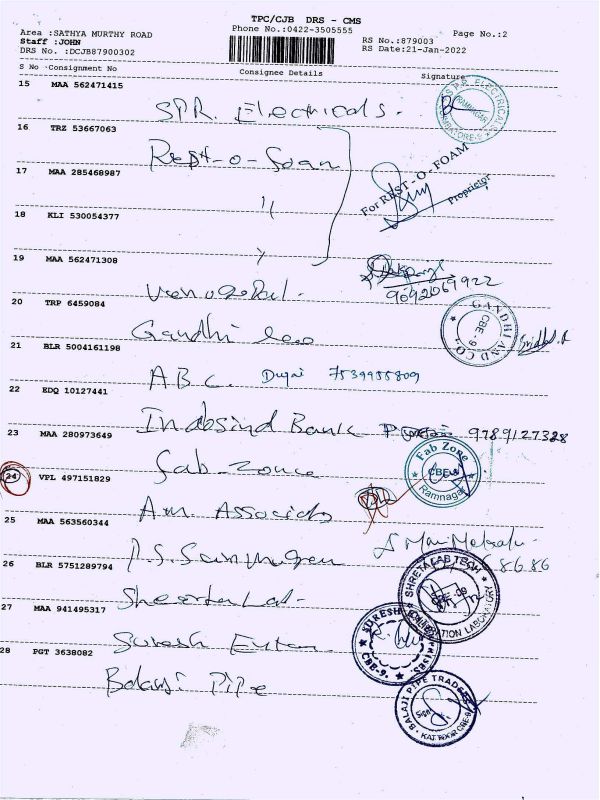 TPC/CJB DRS - CMS
Area :SATHYA MURTHY ROAD
Phone No.:0422-3505555
Page No.:2
Staff :JOHN
RS No.:879003
DRS No. :DCJB87900302
RS Date:21-Jan-2022
S No Consignment No
Consignee Details
Signature
15 MAA 562471415
SPR. Electricals.
16 TRZ 53667063
Rest-o-foam
17 MAA 285468987
For REST-O-FOAM
Proprietor
18 KLI 530054377
19 MAA 562471308
Venugopal.
9092067922
20 TRP 6459084
Gandhi
GANDHI AND CO
CBE-9
21 BLR 5004161198
A B C. 7539955809
22 EDQ 10127441
Indusind Bank 9789127328
23 MAA 280973649
Fab Zone
CBE
Ramnagar
24 VPL 497151829
Am Associate
25 MAA 563560344
26 BLR 5751289794
SHRETA LAB TECH
27 MAA 941495317
Suresh
SURESH
CBE-9.
28 PGT 3638082
Balaji Pipe
BALAJI PIPE TRADERS
KATTOOR CBE-9